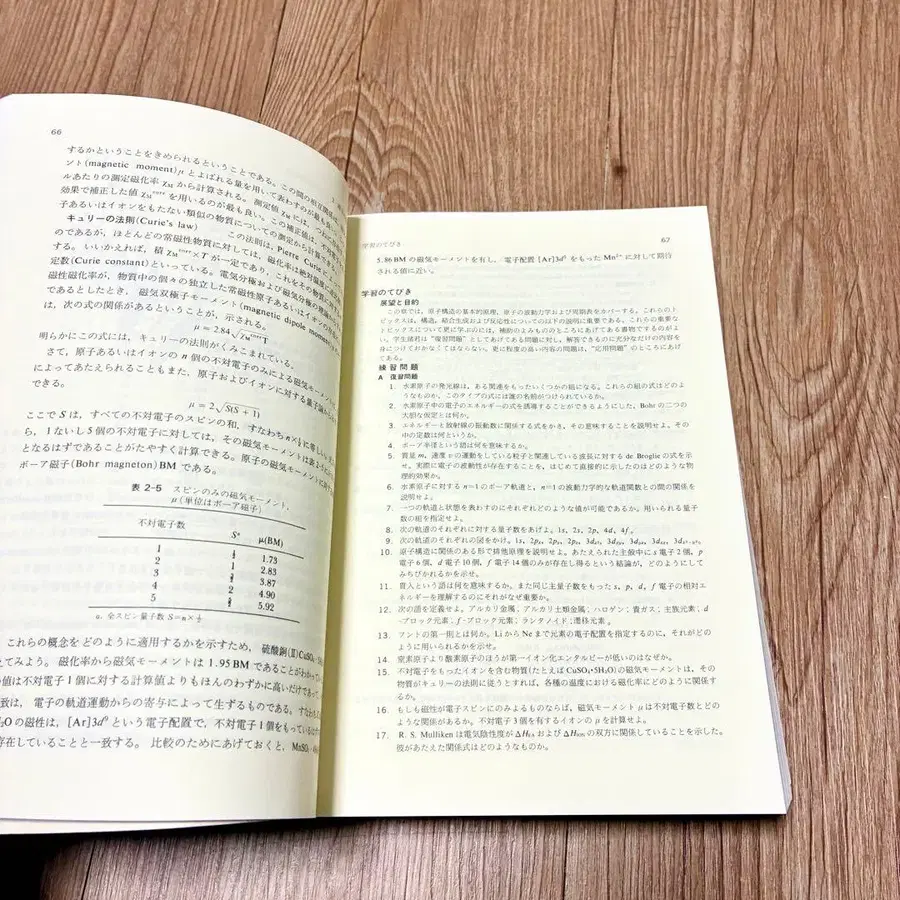 66
するかということをきめられるということである。この間の相互関係
ント(magnetic moment)μとよばれる量を用いて表わすのが最も
ルあたりの測定磁化率 χM から計算される。 測定値 χM には, つねに
効果で補正した値 χM^corr を用いるのが最も良い。この補正値は,
子あるいはイオンをもたない類似の物質についての測定から計算
キュリーの法則(Curie's law) この法則は, Pierre Curie に
のであるが, ほとんどの常磁性物質に対しては, 磁化率は絶対温度に
する。 いいかえれば, 積 χM^corr×T が一定であり, これをその物質に対する
定数(Curie constant)といっている。電気分極および磁気分極の理論
磁性磁化率が, 物質中の個々の独立した常磁性原子あるいはイオン
であるとしたとき, 磁気双極子モーメント(magnetic dipole moment)
は, 次の式の関係があるということが, 示される。
μ = 2.84√χM^corr T
明らかにこの式には, キュリーの法則がくみこまれている。
さて, 原子あるいはイオンの n 個の不対電子のみによる磁気モーメン
によってあたえられることもまた, 原子およびイオンに対する量子論
できる。
μ = 2√S(S + 1)
ここで S は, すべての不対電子のスピンの和, すなわち n×½ に等しい。
ら, 1ないし5個の不対電子に対しては, その磁気モーメントは表2-5
となるはずであることがたやすく計算できる。原子の磁気モーメントに
ボーア磁子(Bohr magneton)BM である。
表 2-5 スピンのみの磁気モーメント,
μ(単位はボーア磁子)
不対電子数 S^a μ(BM)
1 ½ 1.73
2 1 2.83
3 3/2 3.87
4 2 4.90
5 5/2 5.92
a. 全スピン量子数 S=n×½
これらの概念をどのように適用するかを示すため, 硫酸銅(II)CuSO₄·5H
えてみよう。 磁化率から磁気モーメントは 1.95 BM であることがわか
の値は不対電子1個に対する計算値よりもほんのわずかに高いだけであっ
致は, 電子の軌道運動からの寄与によって生ずるものである。すなわち
₂O の磁性は, [Ar]3d⁹ という電子配置で, 不対電子1個をもっている
存在していることと一致する。 比較のためにあげておくと, MnSO₄·
学習のてびき 67
5.86 BM の磁気モーメントを有し, 電子配置 [Ar]3d⁵ をもった Mn²⁺ に対して期待
される値に近い。
学習のてびき
展望と目的
この章では, 原子構造の基本的原理, 原子の波動力学および周期表をカバーする。これらのト
ピックスは, 構造, 結合生成および反応性についての以下の説明に重要である。これらの重要な
トピックスについて更に学ぶのには, 補助のよみもののところにあげてある書物でするのがよ
い。学生諸君は“復習問題”としてあげてある問題に対し, 解答できるのに充分なだけの内容を
身につけておかなくてはならない。更に程度の高い内容の問題は, “応用問題”のところにあげ
てある。
練習問題
A 復習問題
1. 水素原子の発光線は, ある関連をもったいくつかの組になる。これらの組の式はどのよ
うなものか。このタイプの式には誰の名前がつけられているか。
2. 水素原子中の電子のエネルギーの式を誘導することができるようにした, Bohr の二つの
大胆な仮定とは何か。
3. エネルギーと放射線の振動数に関係する式をかき, その意味することを説明せよ, その
中の定数は何というか。
4. ボーア半径という語は何を意味するか。
5. 質量 m, 速度 v の運動をしている粒子と関連している波長に対する de Broglie の式を示
せ。実際に電子の波動性が存在することを, はじめて直接的に示したのはどのような物
理的効果か。
6. 水素原子に対する n=1 のボーア軌道と, n=1 の波動力学的な軌道関数との間の関係を
説明せよ。
7. 一つの軌道と状態を表わすのにそれぞれどのような値が可能であるか。用いられる量子
数の組を指定せよ。
8. 次の軌道のそれぞれに対する量子数をあげよ。1s, 2s, 2p, 4d, 4f。
9. 次の軌道のそれぞれの図をかけ。1s, 2px, 2py, 2pz, 3dz², 3dxy, 3dyz, 3dxz, 3dx²-y²。
10. 原子構造に関係のある形で排他原理を説明せよ。あたえられた主殻中に s 電子2個, p
電子6個, d 電子10個, f 電子14個のみが存在し得るという結論が, どのようにして
みちびかれるかを示せ。
11. 貫入という語は何を意味するか。また同じ主量子数をもった s, p, d, f 電子の相対エネ
ルギーを理解するのにそれがなぜ重要か。
12. 次の語を定義せよ。アルカリ金属; アルカリ土類金属; ハロゲン; 貴ガス; 主族元素; d
-ブロック元素; f-ブロック元素; ランタノイド; 遷移元素。
13. フントの第一則とは何か。Li から Ne まで元素の電子配置を指定するのに, それがどの
ように用いられるかを示せ。
14. 窒素原子より酸素原子のほうが第一イオン化エンタルピーが低いのはなぜか。
15. 不対電子をもったイオンを含む物質(たとえば CuSO₄·5H₂O)の磁気モーメントは, その
物質がキュリーの法則に従うとすれば, 各種の温度における磁化率にどのように関係す
るか。
16. もしも磁性が電子スピンにのみよるものならば, 磁気モーメント μ は不対電子数とどの
ような関係があるか。不対電子3個を有するイオンの μ を計算せよ。
17. R. S. Mulliken は電気陰性度が ΔHEA および ΔHION の双方に関係していることを示した。
彼があたえた関係式はどのようなものか。